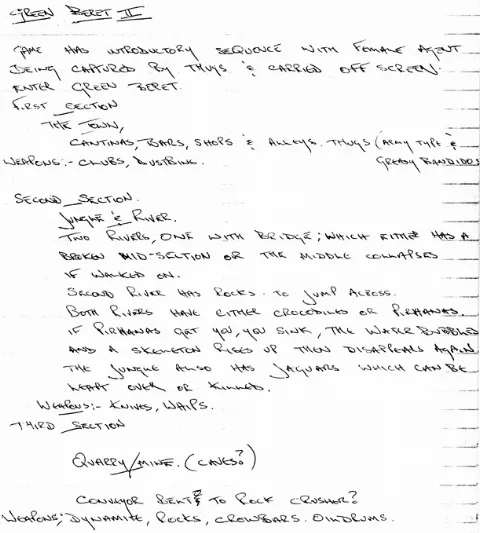 GREEN BERET II
GAME HAS INTRODUCTORY SEQUENCE WITH FEMALE AGENT
BEING CAPTURED BY THUGS & CARRIED OFF SCREEN.
ENTER GREEN BERET.
FIRST SECTION
THE TOWN,
CANTINAS, BARS, SHOPS & ALLEYS. THUGS (ARMY TYPE &
WEAPONS:- CLUBS, DUSTBINS. GREASY BANDIDOS
SECOND SECTION.
JUNGLE & RIVER.
TWO RIVERS, ONE WITH BRIDGE; WHICH EITHER HAS A
BROKEN MID-SECTION OR THE MIDDLE COLLAPSES
IF WALKED ON.
SECOND RIVER HAS ROCKS TO JUMP ACROSS.
BOTH RIVERS HAVE EITHER CROCODILES OR PIRHANAS.
IF PIRHANAS GET YOU, YOU SINK, THE WATER BUBBLES
AND A SKELETON RISES UP THEN DISAPPEARS AGAIN.
THE JUNGLE ALSO HAS JAGUARS WHICH CAN BE
LEAPT OVER OR KILLED.
WEAPONS:- KNIVES, WHIPS.
THIRD SECTION
QUARRY/MINE. (CAVES?)
CONVEYOR BELTS TO ROCK CRUSHER?
WEAPONS; DYNAMITE, ROCKS, CROWBARS. OILDRUMS.